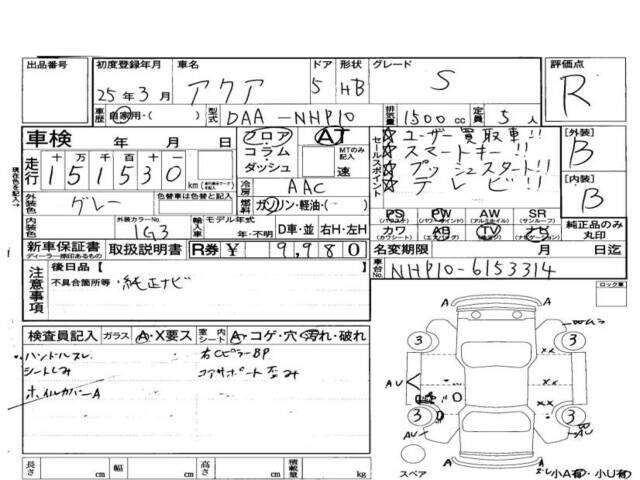 出品番号 初度登録年月 車名 ドア 形状 グレード 評価点
25年3月 アクア 5 HB S R
車歴 自家用・( ) 型式 DAA-NHP10 排気量 1500 cc 定員 5人
車検 年 月 日 フロア コラム・ダッシュ AT MTのみ記入 速
セールスポイント
☆ユーザー買取車!!
☆スマートキー!!
☆プッシュスタート!!
☆テレビ!!
[外装] B
[内装] B
走行 十万千百十一 151530 km
冷房 AAC
外装色 グレー 色替車は色替と記入 燃料 ガソリン・軽油・( )
PS PW AW SR
(パワステ) (パワーウインド) (アルミホイル) (サンルーフ)
カワ AB TV ナビ
(カワシート) (エアバッグ) (テレビ) (ナビゲーション)
純正品のみ丸印
内装色 外装カラーNo. 1G3 輸入車 モデル年式 年・不明 D車・並 右H・左H
新車保証書 取扱説明書 R券 ¥ 9,980 名変期限 月 日迄
ディーラー捺印あるもの
車台No. NHP10-6153314
注意事項 後日品[ ]
不具合箇所等・純正ナビ
ロック車
検査員記入 ガラス A・X要ス 室内シート A・コゲ・穴・汚れ・破れ
ハンドルスレ 右CピラーBP
シートしみ コアサポート歪み
ホイルカバーA
3 3
AU
3 3
AU
スペア
小A有・小U有
長さ cm 幅 cm 高さ cm 積載量 kg